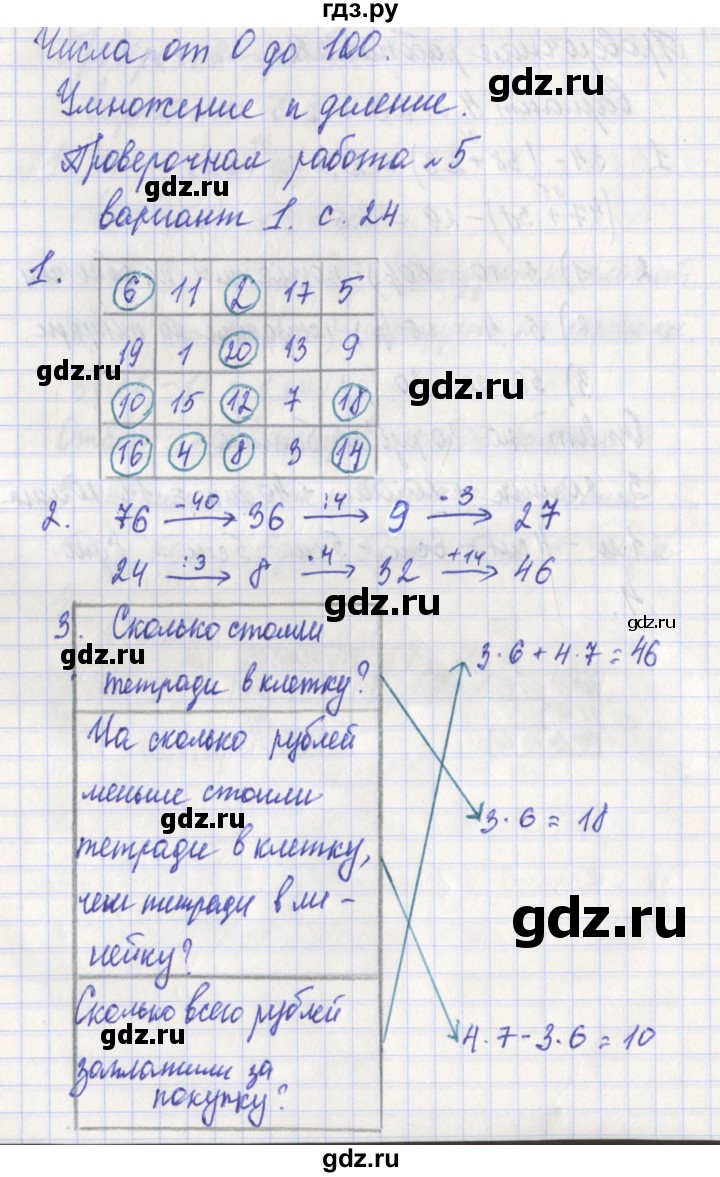 гдз.ру
Числа от 0 до 100.
gdz.ru
Умножение и деление.
Проверочная работа №5
gdz.ru
вариант 1. с. 24
1.
6 11 2 17 5
19 1 20 13 9
gdz.ru
gdz.ru
10 15 12 7 18
16 4 8 3 14
2. 76 -40 36 :4 9 ·3 27
24 :3 8 ·4 32 +14 46
gdz.ru
3. Сколько стоили
gdz.ru
gdz.ru
тетради в клетку?
3·6+4·7=46
На сколько рублей
меньше стоили
gdz.ru
3·6=18
тетради в клетку,
чем тетради в ли-
gdz.ru
нейку?
Сколько всего рублей
gdz.ru
4·7-3·6=10
заплатили за
gdz.ru
покупку?
gdz.ru
gdz.ru